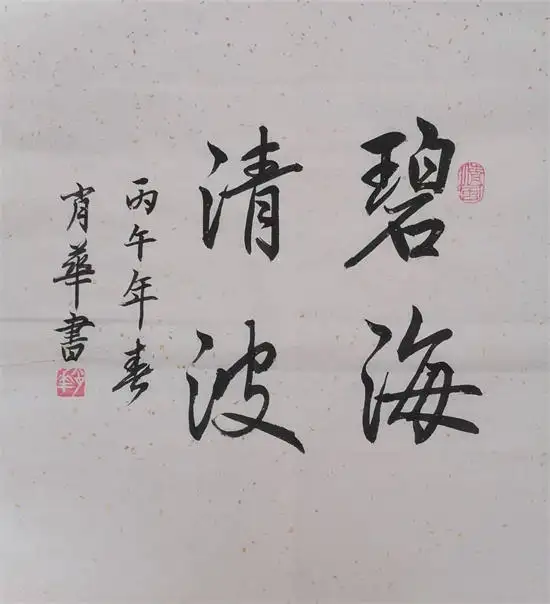 碧海
清波
丙午年春
肖華書